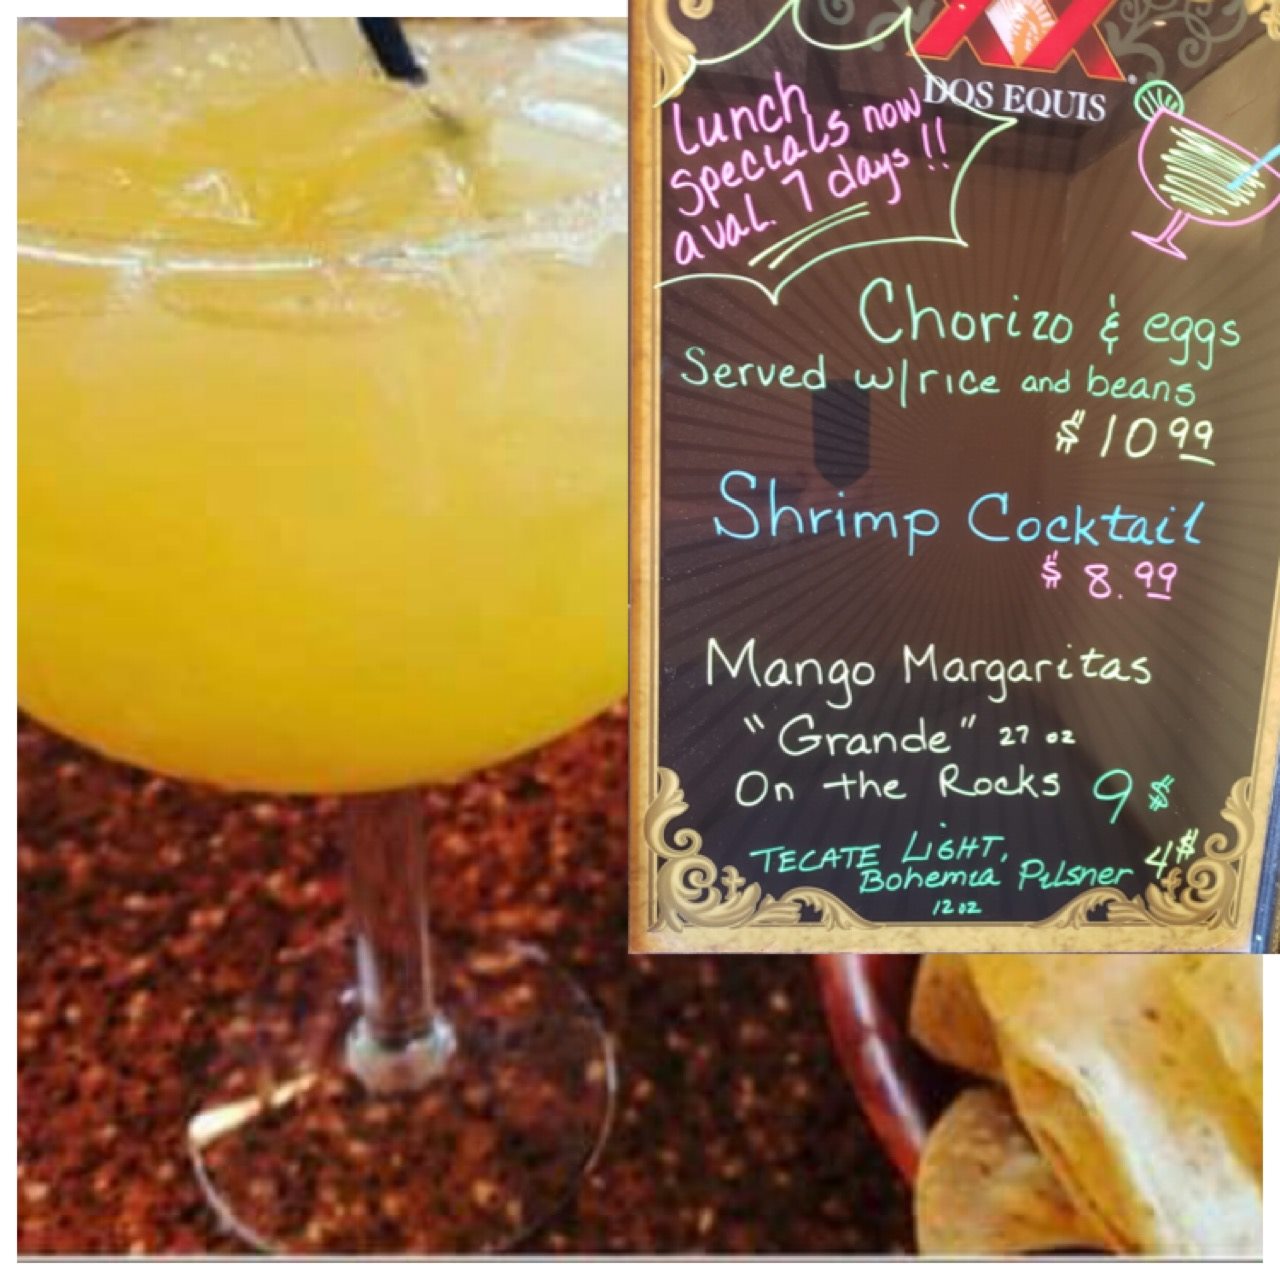 XX
DOS EQUIS
Lunch
Specials now
aval. 7 days!!
Chorizo & eggs
Served w/rice and beans
$10.99
Shrimp Cocktail
$8.99
Mango Margaritas
"Grande" 27 oz
On the Rocks 9$
TECATE LIGHT,
Bohemia Pilsner 4$
12oz